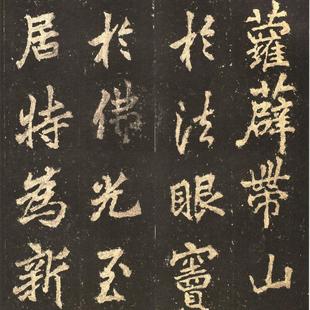 蘿薜帶山
於法眼竇
於佛光至
居特為新